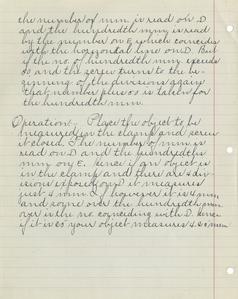 the number of mm. is read on D
and the hundredth mm. is read
by the number on E which coincides
with the horizontal line on D. But
if the no. of hundredth mm. exceeds
50 and the screw turns to the be-
ginning of the divisions again
that number plus 50 is taken for
the hundredth mm.
Operation:- Place the object to be
measured in the clamp and screw
it closed. The number of mm. is
read on D and the hundredths
mm on E. Hence if an object is
in the clamp and there are 4 div-
isions exposed on D it measures
just 4 mm. If however it is 4 mm
and some over the hundredth mm
over is the no. coinciding with D. Hence
if it is 50 your object measures 4.50 mm